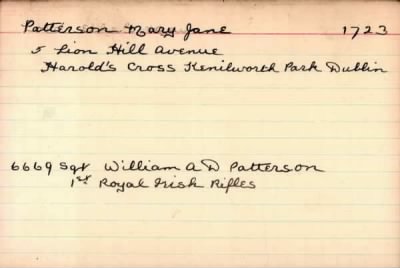 Patterson Mary Jane 1723
5 Lion Hill Avenue
Harold's Cross Kenilworth Park Dublin
6669 Sgt William A D Patterson
1st Royal Irish Rifles